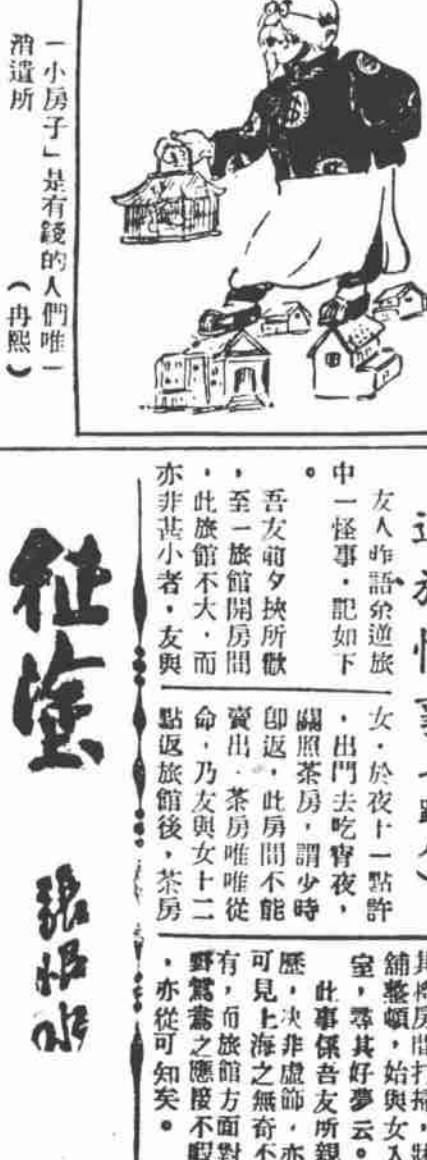 「小房子」是有錢的人們唯一
消遣所
（冉熙）
友人昨語余逆旅
中一怪事．記如下
。
吾友前夕挾所歡
，至一旅館開房間
，此旅館不大．而
亦非甚小者，友與
女．於夜十一點許
，出門去吃宵夜，
關照茶房，謂少時
卽返，此房間不能
賣出．茶房唯唯從
命，乃友與女十二
點返旅館後，茶房
其將房間打掃，牀
舖整頓，始與女入
室，尋其好夢云。
此事係吾友所親
歷，决非虛飾，亦
可見上海之無奇不
有，而旅館方面對
野鴛鴦之應接不暇
，亦從可知矣。
征塗
張恨水